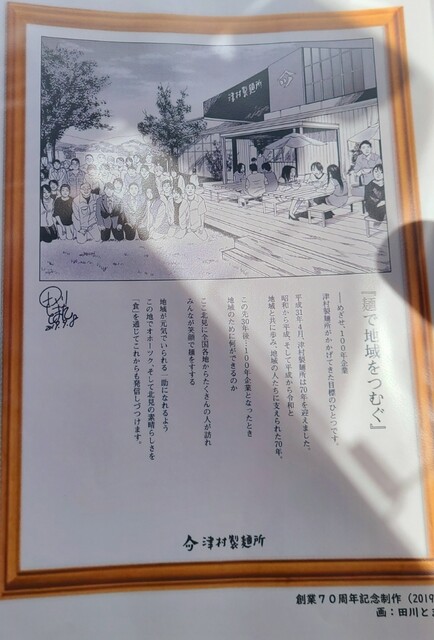 津村製麺所
『麺で地域をつむぐ』
―めざせ、100年企業
津村製麺所がかかげてきた目標のひとつです。
平成31年4月、津村製麺所は70年を迎えました。
昭和から平成、そして平成から令和と
地域と共に歩み、地域の人たちに支えられた70年。
この先30年後…100年企業となったとき
地域のために何ができるのか
ここ北見に全国各地からたくさんの人が訪れ
みんなが笑顔で麺をすする
地域が元気でいられる一助になれるよう
この地でオホーツク、そして北見の素晴らしさを
「食」を通じてこれからも発信しつづけます。
津村製麺所
創業70周年記念制作（2019
画：田川と